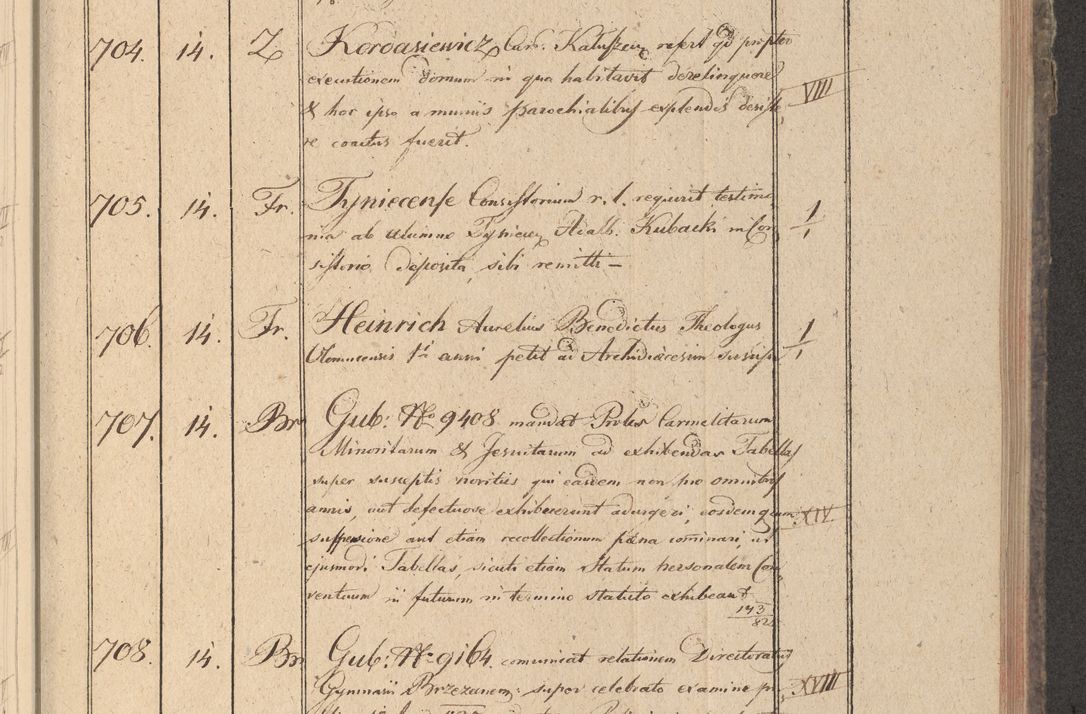 704. 14. Z Kordasiewicz Car. Kaluszen refert qd propter
executionem domum in qua habitavit derelinquere
& hoc ipso a muniis parochialibus explendis desiste VIII
re coactus fuerit.
705. 14. Fr. Tyniecense Consistorium r. l. requirit testimo
nia ab alumno Tyniecen Adalb. Kubacki in Con 1/1
sistorio deposita, sibi remitti –
706. 14. Fr. Heinrich Aurelius Benedictus Theologus
Olomucensis 1i anni petit ad Archidiacesim suscipi 1/1
707. 14. Br Gub: No 9408 mandat Prolus Carmelitarum
Minoritarum & Jesuitarum ad exhibendas Tabellas
super susceptis novitiis qui easdem non pro omnibus
annis, aut defectuose exhibuerunt adurgeri, eosdemque XIV
suspensione aut etiam recollectionum pæna cominari, ut
ejusmodi Tabellas, sicuti etiam Statum personalem Con
ventuum in futurum in termino statuto exhibeant
143/82
708. 14. Br Gub: No 9164. comunicat relationem Directoratus
Gymnasii Brzezanem: super celebrato examine XVIII